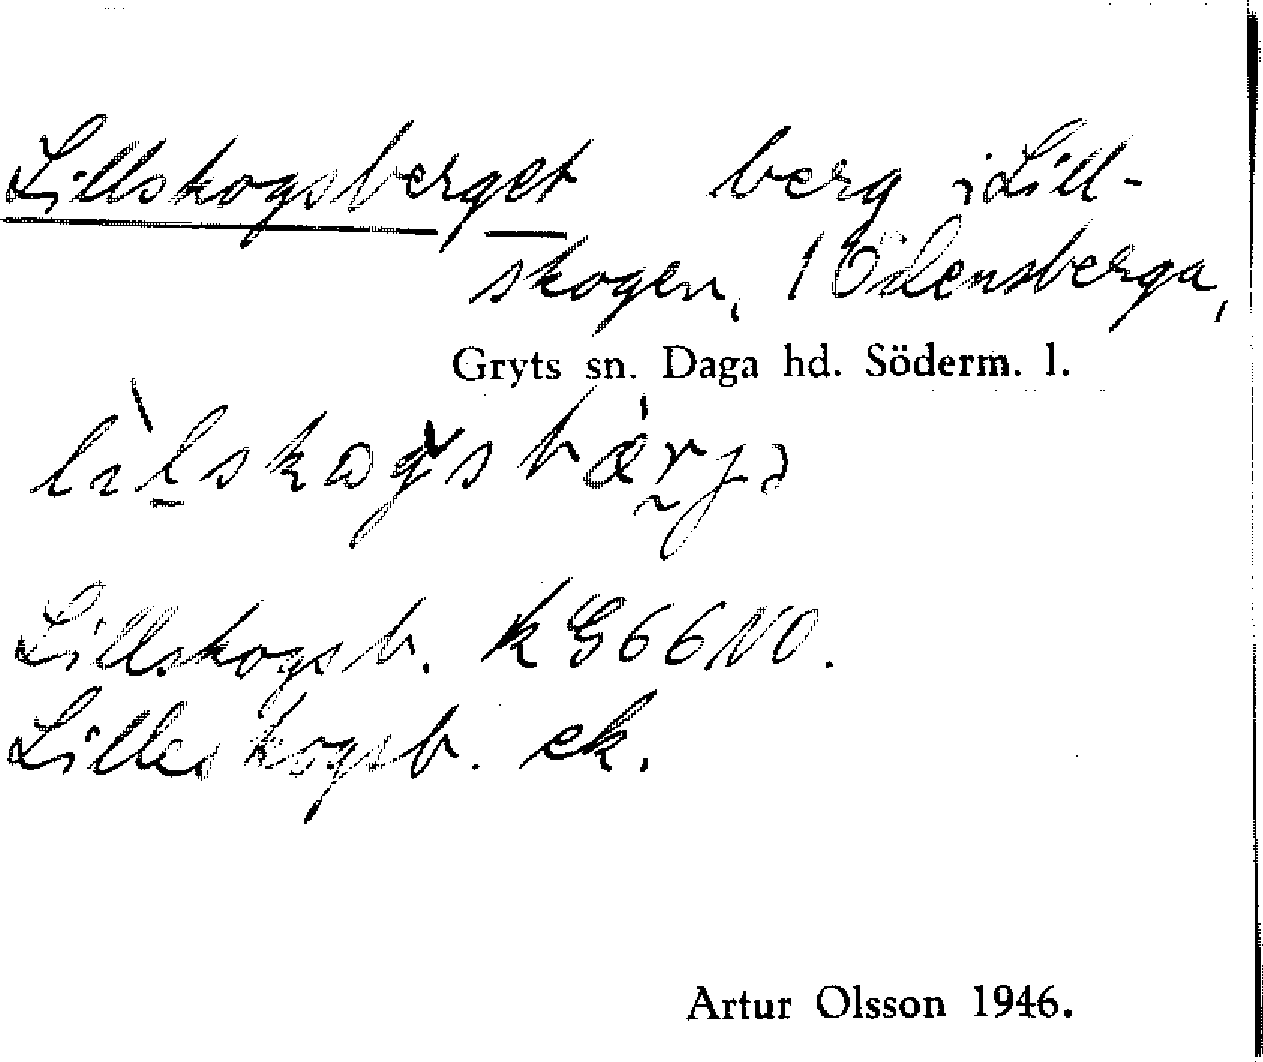 Lillskogsberget berg i Lill-
skogen, 1 Ödensberga,
Gryts sn. Daga hd. Söderm. l.
Lillskogsb. k G66NO.
Lilleskogsb. ek.
Artur Olsson 1946.